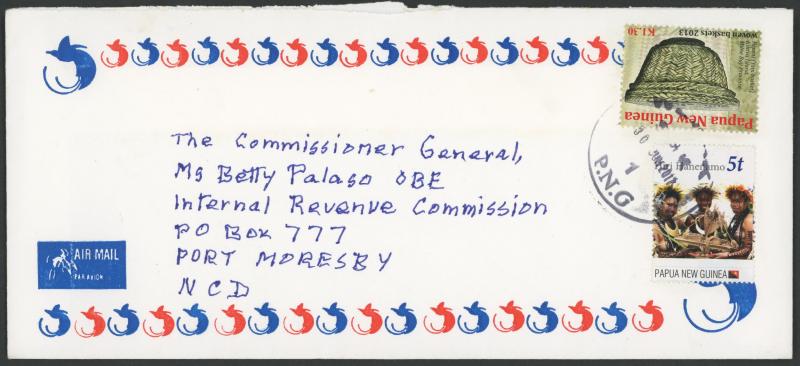 K1.30
woven baskets 2013
Papua New Guinea
5t
PAPUA NEW GUINEA
1
P.N.G
The Commissioner General,
Ms Betty Palaso OBE
Internal Revenue Commission
PO Box 777
PORT MORESBY
NCD
AIR MAIL
PAR AVION